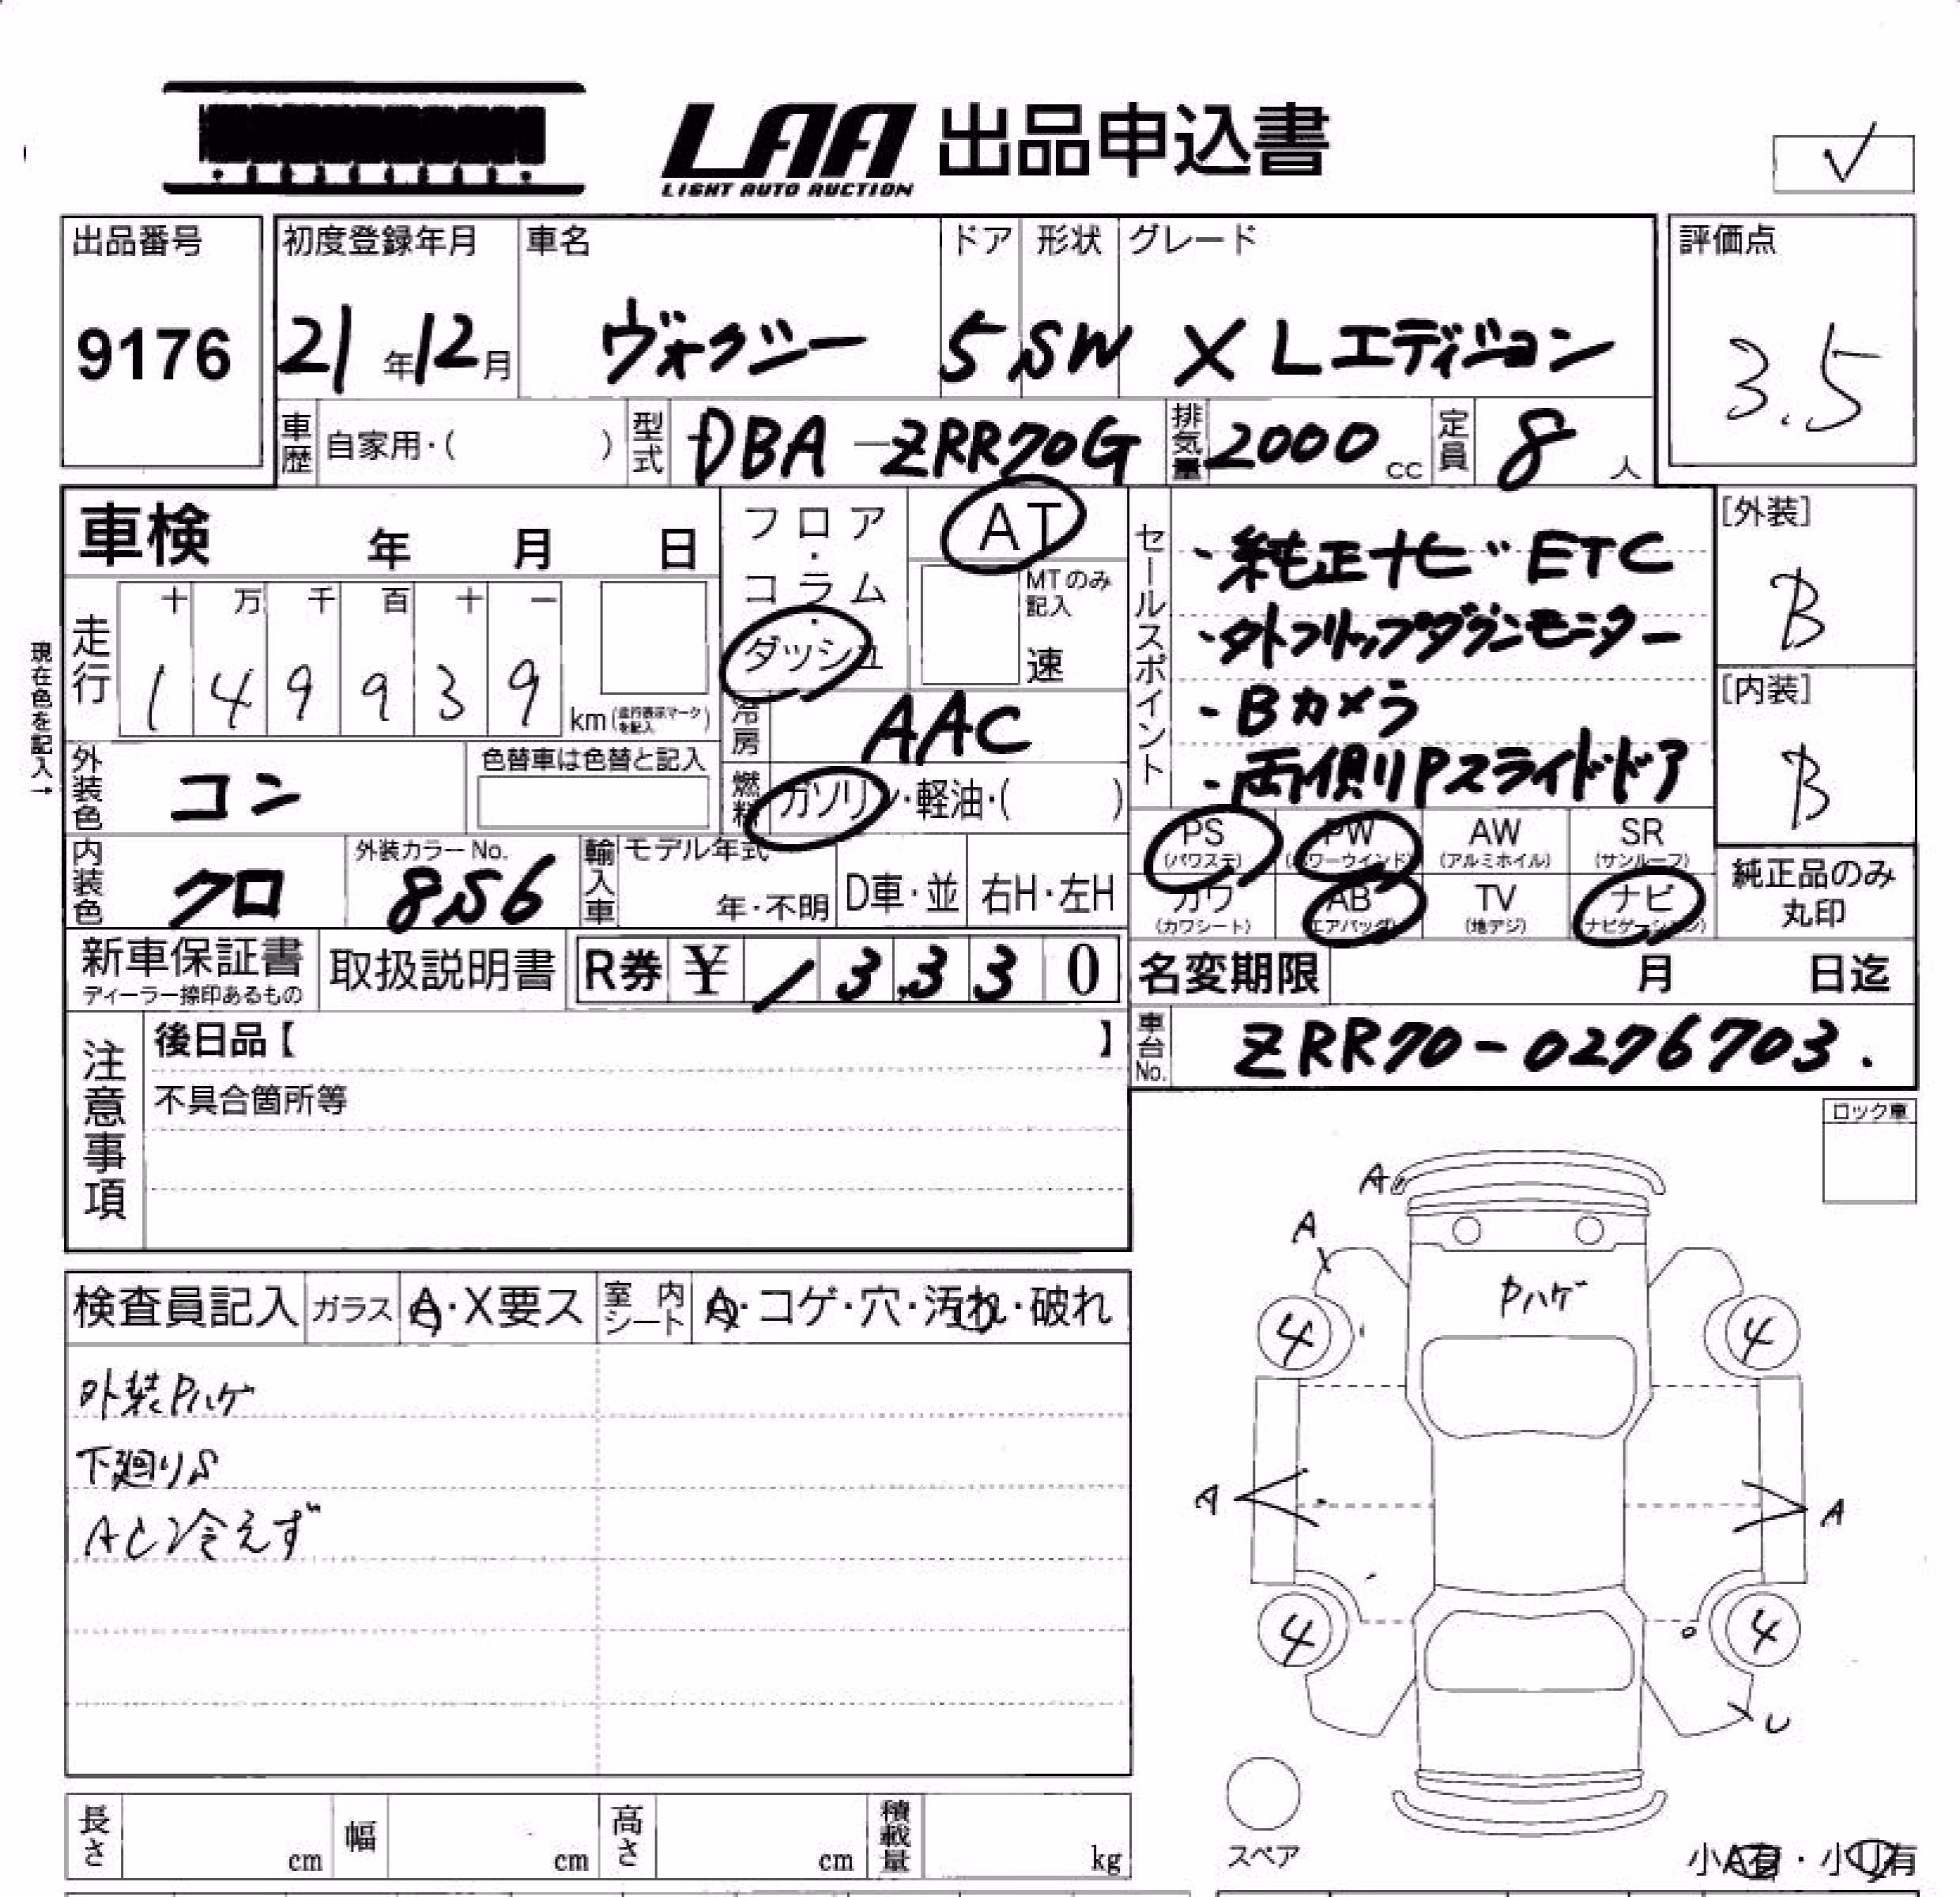 LAA 出品申込書
LIGHT AUTO AUCTION
✓
出品番号 初度登録年月 車名 ドア 形状 グレード 評価点
9176 21年12月 ヴォクシー 5 SW X Lエディション 3.5
車歴 自家用・( ) 型式 DBA-ZRR70G 排気量 2000cc 定員 8人
車検 年 月 日
フロア・コラム・ダッシュ
AT
MTのみ記入
速
セールスポイント
・純正ナビ ETC
・外フリップダウンモニター
・Bカメラ
・両側Pスライドドア
[外装]
B
[内装]
B
現在色を記入→
走行 十 万 千 百 十 一
1 4 9 9 3 9 km (走行表示マークを記入)
冷房 AAC
外装色 コン 色替車は色替と記入
燃料 ガソリン・軽油・( )
内装色 クロ 外装カラーNo. 856 輸入車 モデル年式 年・不明 D車・並 右H・左H
PS (パワステ) PW (パワーウインド) AW (アルミホイル) SR (サンルーフ)
カワ (カワシート) AB (エアバッグ) TV (地デジ) ナビ (ナビゲーション)
純正品のみ丸印
新車保証書 ディーラー捺印あるもの 取扱説明書 R券 ¥ 13330
名変期限 月 日迄
車台No. ZRR70-0276703.
注意事項
後日品【 】
不具合箇所等
ロック車
検査員記入 ガラス A・X要ス 室内シート A・コゲ・穴・汚れ・破れ
外装Pハゲ
下廻りS
AC冷えず
A
A
Pハゲ
4 4
A A
4 4
U
スペア
小A有・小U有
長さ cm 幅 cm 高さ cm 積載量 kg